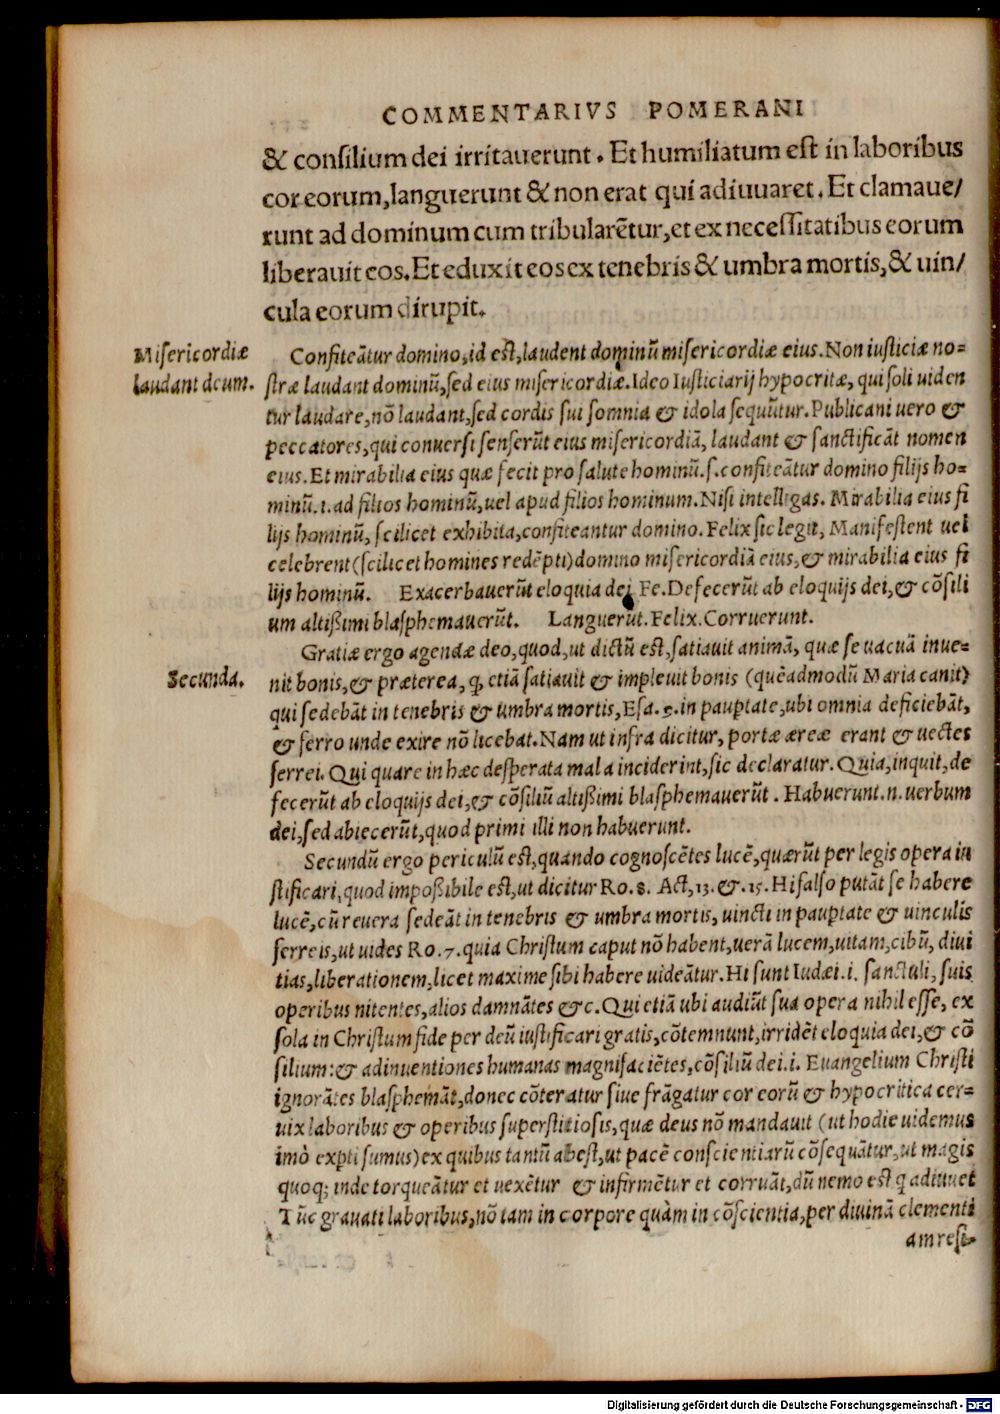 COMMENTARIVS POMERANI
& consilium dei irritauerunt. Et humiliatum est in laboribus
cor eorum, languerunt & non erat qui adiuuaret. Et clamaue/
runt ad dominum cum tribularētur, et ex necessitatibus eorum
liberauit eos. Et eduxit eos ex tenebris & umbra mortis, & uin/
cula eorum dirupit.
Misericordiæ
laudant deum.
Confiteātur domino, id est, laudent dominū misericordiæ eius. Non iusticiæ no=
stræ laudant dominū, sed eius misericordiæ. Ideo Iusticiarij hypocritæ, qui soli uiden
tur laudare, nō laudant, sed cordis sui somnia & idola sequūtur. Publicani uero &
peccatores, qui conuersi senserūt eius misericordiā, laudant & sanctificāt nomen
eius. Et mirabilia eius quæ fecit pro salute hominū. s. confiteātur domino filijs ho=
minū. i. ad filios hominū, uel apud filios hominum. Nisi intelligas. Mirabilia eius fi
lijs hominū, scilicet exhibita, confiteantur domino. Felix sic legit, Manifestent uel
celebrent (scilicet homines redēpti) domino misericordiā eius, & mirabilia eius fi
lijs hominū. Exacerbauerūt eloquia dei, Fe. Defecerūt ab eloquijs dei, & cōsili
um altißimi blasphemauerūt. Languerūt. Felix. Corruerunt.
Secunda.
Gratiæ ergo agendæ deo, quod, ut dictū est, satiauit animā, quæ se uacuā inue=
nit bonis, & præterea, q, etiā satiauit & impleuit bonis (quēadmodū Maria canit)
qui sedebāt in tenebris & umbra mortis, Esa. 5. in paupertate, ubi omnia deficiebāt,
& ferro unde exire nō licebat. Nam ut infra dicitur, portæ æreæ erant & uectes
ferrei. Qui quare in hæc desperata mala inciderint, sic declaratur. Quia, inquit, de
fecerūt ab eloquijs dei, & cōsiliū altißimi blasphemauerūt. Habuerunt. n. uerbum
dei, sed abiecerūt, quod primi illi non habuerunt.
Secundū ergo periculū est, quando cognoscētes lucē, quærūt per legis opera iu
stificari, quod impoßibile est, ut dicitur Ro. 8. Act, 13. &. 15. Hi falso putāt se habere
lucē, cū reuera sedeāt in tenebris & umbra mortis, uincti in paupertate & uinculis
ferreis, ut uides Ro. 7. quia Christum caput nō habent, uerā lucem, uitam, cibū, diui
tias, liberationem, licet maxime sibi habere uideātur. Hi sunt Iudæi. i. sanctuli, suis
operibus nitentes, alios damnātes &c. Qui etiā ubi audiūt sua opera nihil esse, ex
sola in Christum fide per deū iustificari gratis, cōtemnunt, irridēt eloquia dei, & cō
silium: & adinuentiones humanas magnifaciētes, cōsiliū dei. i. Euangelium Christi
ignorātes blasphemāt, donec cōteratur siue frāgatur cor eorū & hypocritica cer=
uix laboribus & operibus superstitiosis, quæ deus nō mandauit (ut hodie uidemus
imò expti sumus) ex quibus tantū abest, ut pacē conscientiarū cōsequātur, ut magis
quoq; inde torqueātur et uexētur & infirmētur et corruāt, dū nemo est q adiuuet
Tūc grauati laboribus, nō tam in corpore quàm in cōscientia, per diuinā clementi
am resi=